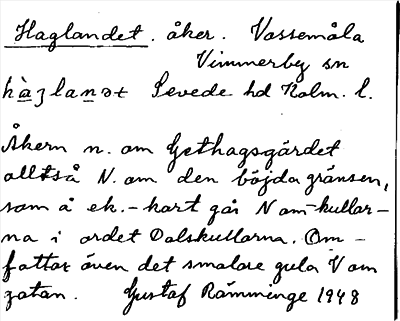 Haglandet. åker. Vassemåla
Vimmerby sn
hàʒlanət Sevede hd Kalm. l.
Åkern n. om Gethagsgärdet
alltså N. om den böjda gränsen,
som å ek.-kart går N om -kullar-
na i ordet Dalskullarna. Om-
fattar även det smalare gula V om
gatan. Gustaf Rämminge 1948